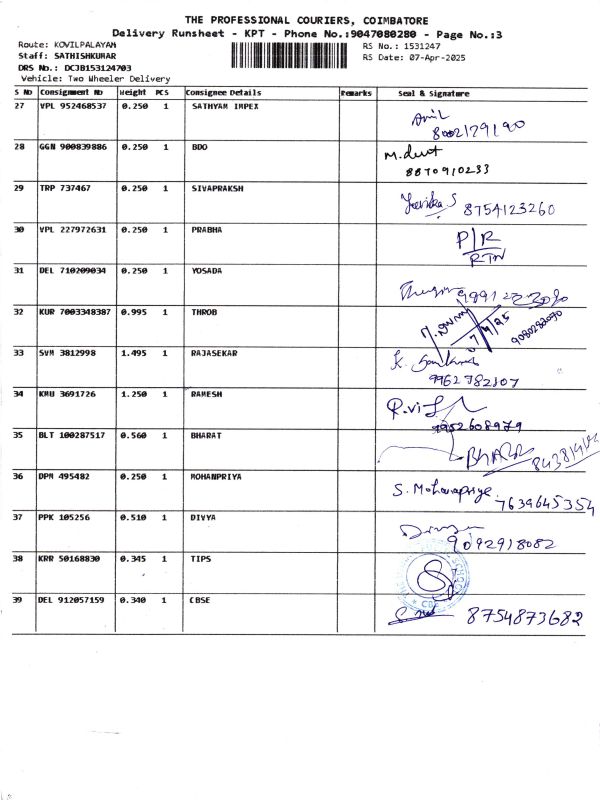 THE PROFESSIONAL COURIERS, COIMBATORE
Delivery Runsheet - KPT - Phone No.:9047080280 - Page No.:3
Route: KOVILPALAYAM
RS No.: 1531247
Staff: SATHISHKUMAR
RS Date: 07-Apr-2025
DRS No.: DCJB153124703
Vehicle: Two Wheeler Delivery
S NO Consignment NO Weight PCS Consignee Details Remarks Seal & Signature
27 VPL 952468537 0.250 1 SATHYAM IMPEX
28 GGN 900839886 0.250 1 BDO
8870910233
29 TRP 737467 0.250 1 SIVAPRAKSH
8754123260
30 VPL 227972631 0.250 1 PRABHA P/R
RTN
31 DEL 710209034 0.250 1 YOSADA
32 KUR 7003348387 0.995 1 THROB
7/4/25
9080282090
33 SVM 3812998 1.495 1 RAJASEKAR
9962782107
34 KMU 3691726 1.250 1 RAMESH
9952608979
35 BLT 100287517 0.560 1 BHARAT
36 DPM 495482 0.250 1 MOHANPRIYA S. Mohanapriya
7639645354
37 PPK 105256 0.510 1 DIVYA
9092918082
38 KRR 50168830 0.345 1 TIPS
39 DEL 912057159 0.340 1 CBSE 8754873682